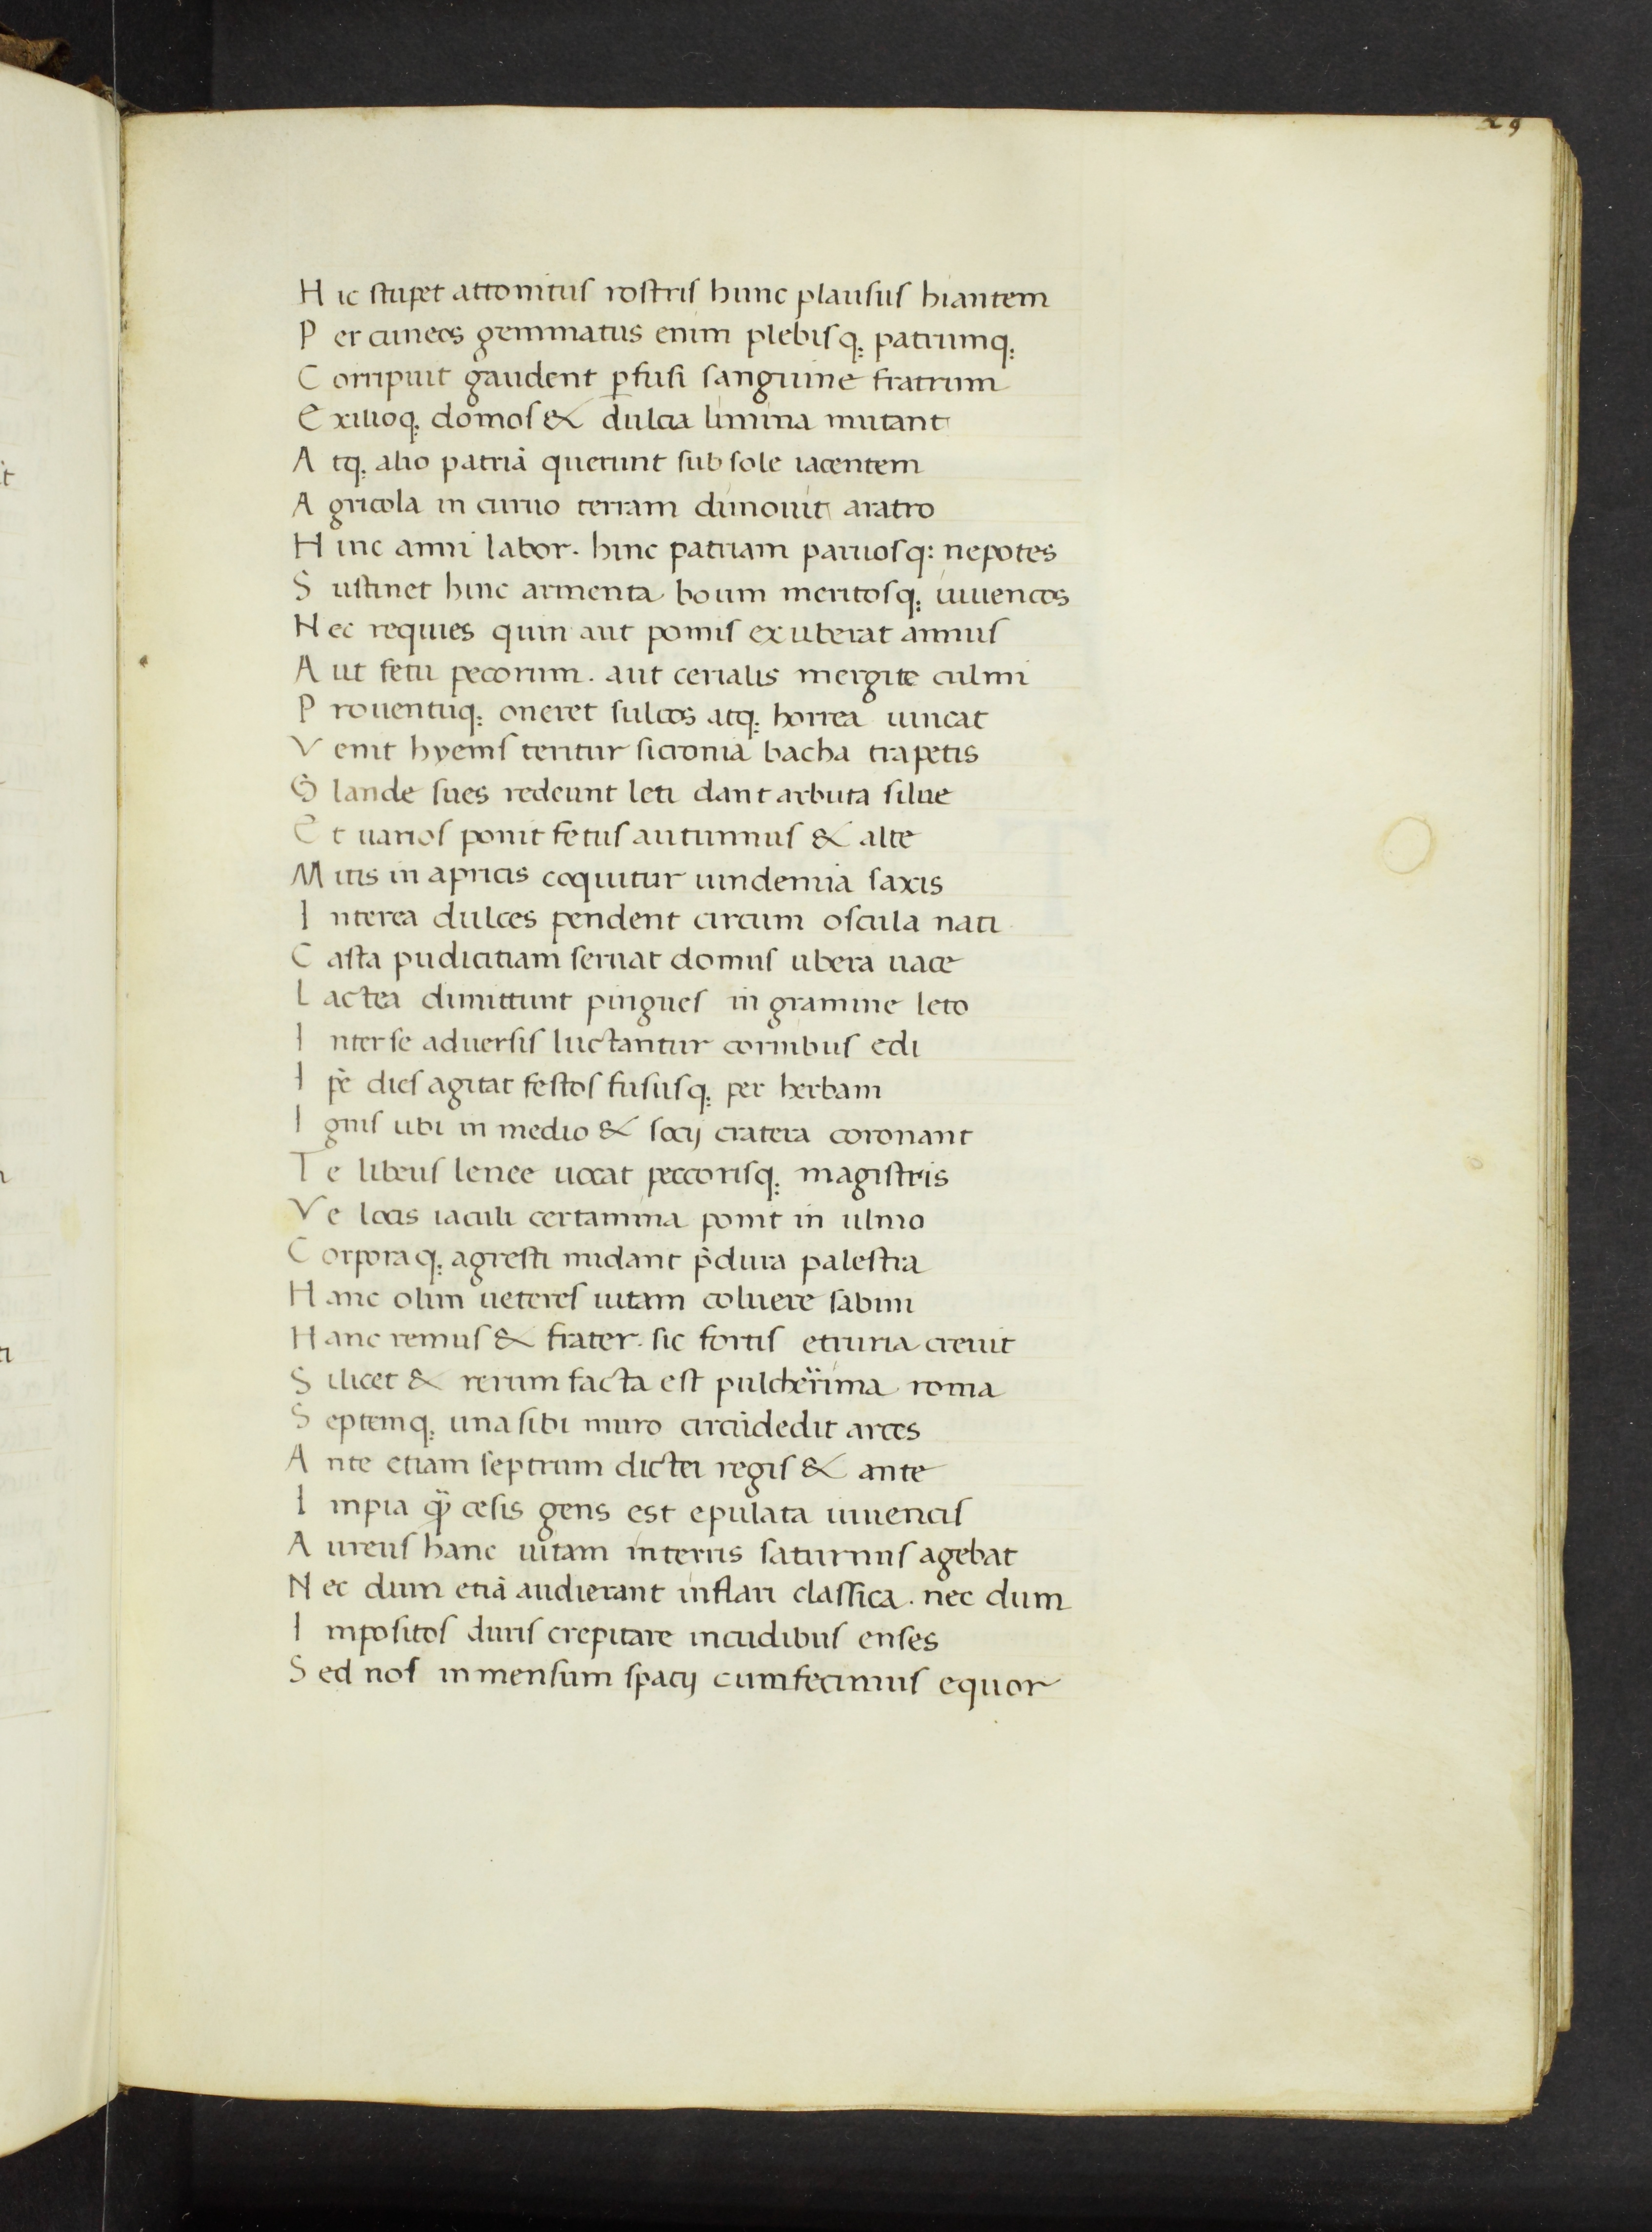 29
H ic stupet attonitus rostris hunc plausus hiantem
P er cuneos gemmatus enim plebisq; patrumq;
C orripuit gaudent ꝑfusi sanguine fratrum
E xilioq; domos & dulcia limina mutant
A tq; alio patriā querunt sub sole iacentem
A gricola in curuo terram dimouit aratro
H inc anni labor. hinc patriam paruosq: nepotes
S ustinet hinc armenta boum meritosq; iuuencos
N ec requies quin aut pomis exuberat annus
A ut fetu pecorum. aut cerialis mergite culmi
P rouentuq; oneret sulcos atq; horrea uincat
V enit hyems teritur sicronia bacha trapetis
G lande sues redeunt leti dant arbuta silue
E t uarios ponit fetus autumnus & alte
M itis in apricis coquitur uindemia saxis
I nterea dulces pendent circum oscula nati
C asta pudicitiam seruat domus ubera uace
L actea dimittunt pingues in gramine leto
I nter se aduersis luctantur cornibus edi
I p̄e dies agitat festos fususq; per herbam
I gnis ubi in medio & socij cratera coronant
T e libeus lenee uocat peccorisq; magistris
V e locis iaculi certamina ponit in ulmo
C orporaq; agresti nudant p̄dura palestra
H anc olim ueteres uitam coluere sabini
H anc remus & frater. sic fortis etruria creuit
S ilicet & rerum facta est pulcherima roma
S eptemq; una sibi muro circūdedit arces
A nte etiam septrum dictei regis & ante
I mpia qͣ̃ cesis gens est epulata iuuencis
A ureus hanc uitam in terris saturnus agebat
N ec dum etiā audierant inflari classica. nec dum
I mpositos duris crepitare incudibus enses
S ed nos inmensum spacij cum fecimus equor